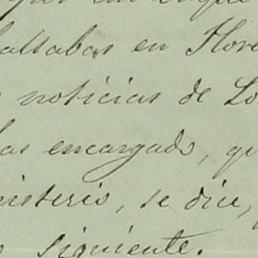 altabas en Flore
noticias de Lo
las encargado, qu
nisterio, se dice,
siguiente.